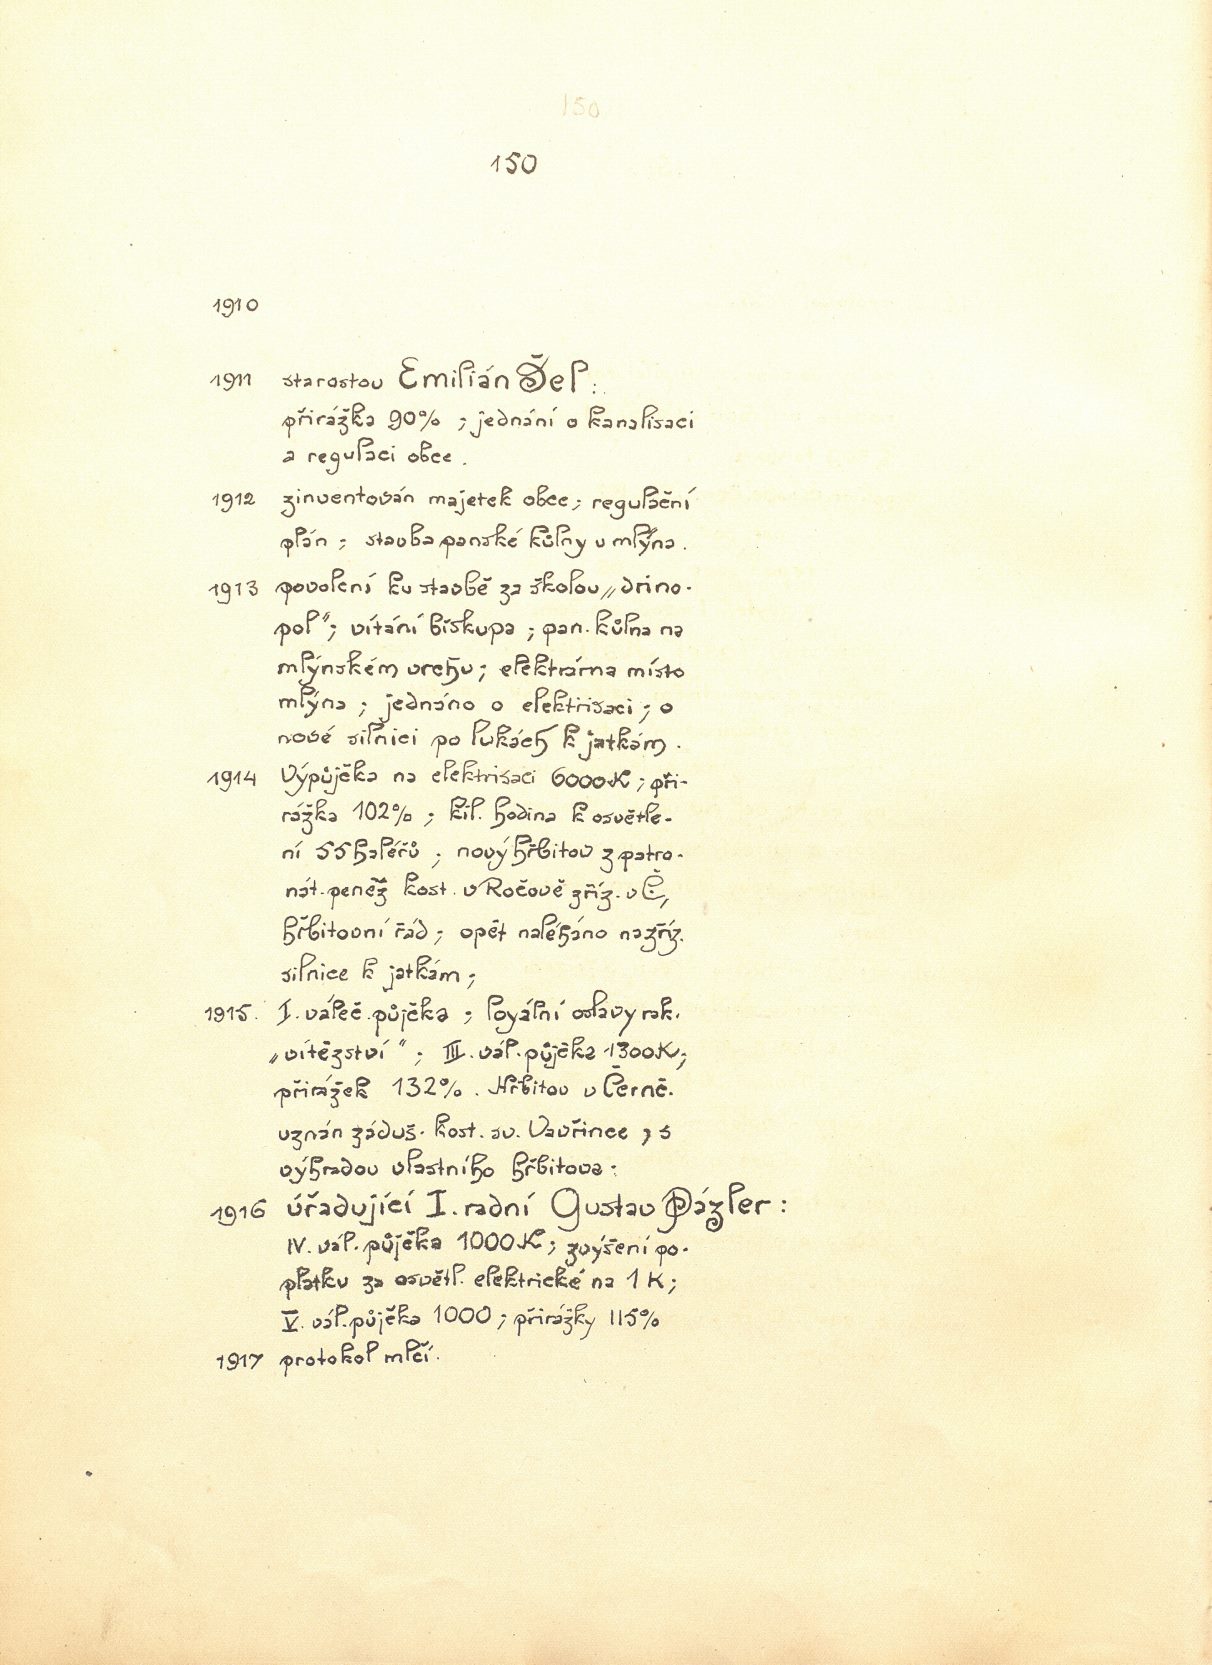 150
150
1910
1911 starostou Emilián Šel:
přirážka 90% ; jednání o kanalisaci
a regulaci obce .
1912 zinventován majetek obce ; regulační
plán ; stavba panské kůlny u mlýna .
1913 povolení ku stavbě za školou „drino-
pol“ ; vítání biskupa ; pan. kůlna na
mlýnském vrchu ; elektrárna místo
mlýna ; jednáno o elektrisaci ; o
nové silnici po lukách k jatkám .
1914 Výpůjčka na elektrisaci 6000 K ; při-
rážka 102% ; kil. hodina k osvětle-
ní 55 haléřů ; nový hřbitov z patro-
nát. peněz kost. v Ročově zříz. v Č,
hřbitovní řád ; opět naleháno na zříz.
silnice k jatkám ;
1915. I. váleč. půjčka ; loyální oslavy rak.
„vítězství“ ; III. vál. půjčka 1300 K ;
přirážek 132% . Hřbitov v Černč.
uznán záduš. kost. sv. Vavřince , s
výhradou vlastního hřbitova :
1916 úřadující I. radní Gustav Pázler :
IV. vál. půjčka 1000 K ; zvýšení po-
platku za osvětl. elektrické na 1 K ;
V. vál. půjčka 1000 ; přirážky 115%
1917 protokol mlčí .